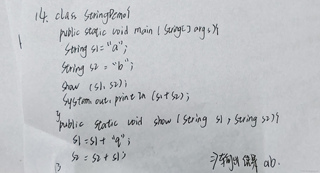 14. class StringDemo{
public static void main (String[] args){
String s1="a";
String s2="b";
show (s1, s2);
System.out.println (s1+s2);
}
public static void show (String s1, String s2){
s1=s1+"q";
s2=s2+s1;
}} ⇒输出结果 ab.